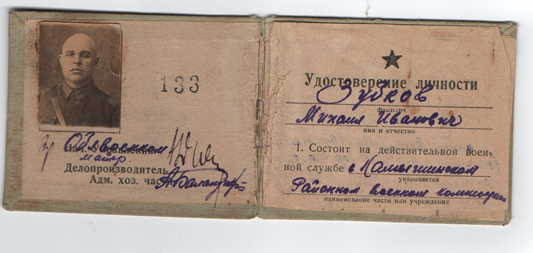 133
Облвоенком
майор
Делопроизводитель
Адм. хоз. час
Удостоверение личности
Зубков
фамилия
Михаил Иванович
имя и отчество
1. Состоит на действительной воен-
ной службе в Камышинском
указывается
Районном военном комиссариате
наименование части или учреждения